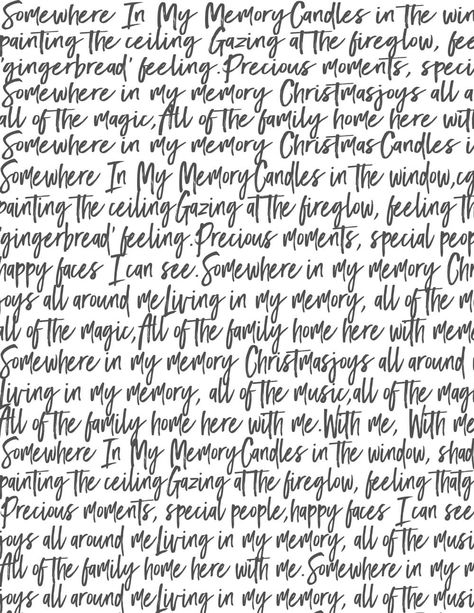 Somewhere In My MemoryCandles in the win
painting the ceiling Gazing at the fireglow, fee
'gingerbread' feeling.Precious moments, speci
Somewhere in my memory Christmasjoys all a
all of the magic,All of the family home here wit
Somewhere in my memory ChristmasCandles i
Somewhere In My MemoryCandles in the window,
painting the ceilingGazing at the fireglow, feeling th
'gingerbread' feeling.Precious moments, special peop
happy faces I can see.Somewhere in my memory Chr
joys all around meLiving in my memory, all of the m
all of the magic,All of the family home here with mem
Somewhere in my memory Christmasjoys all around
Living in my memory, all of the music,all of the mag
All of the family home here with me.With me, With me
Somewhere In My MemoryCandles in the window, shad
painting the ceilingGazing at the fireglow, feeling thatg
Precious moments, special people,happy faces I can see
joys all around meLiving in my memory, all of the musi
All of the family home here with me.Somewhere in my m
joys all around meLiving in my memory, all of the must